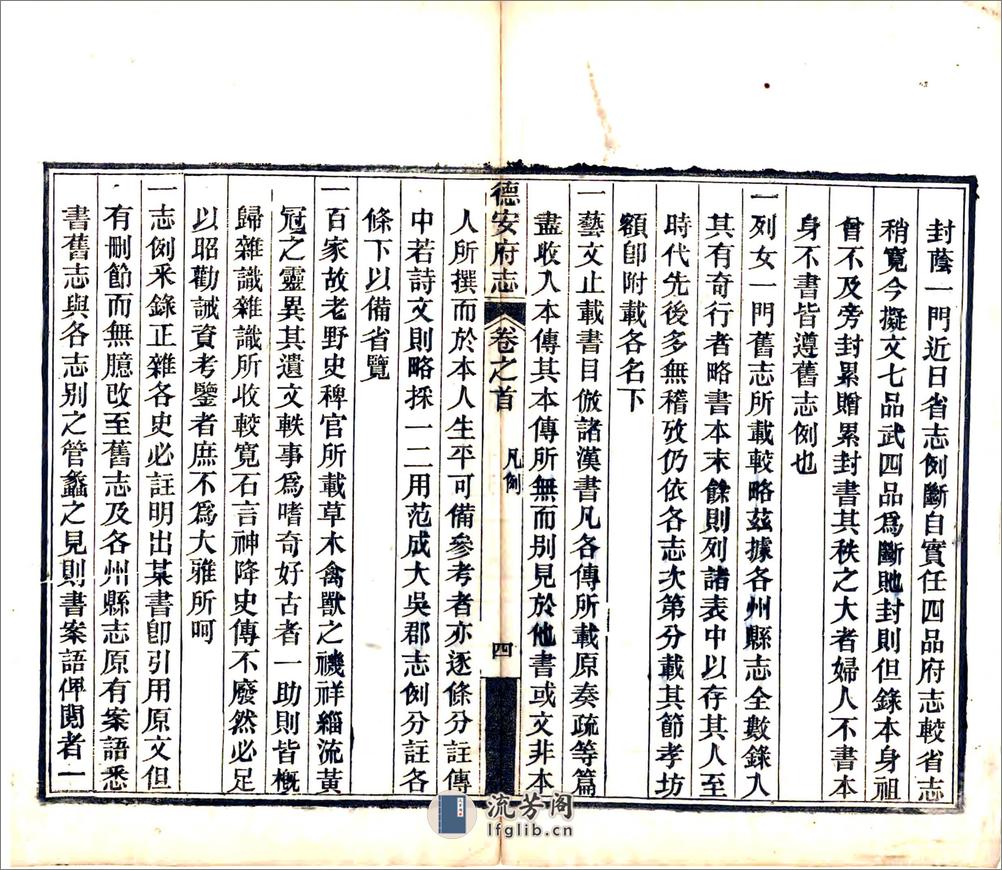 封蔭一門近日省志例斷自實任四品府志較省志
稍寬今擬文七品武四品爲斷貤封則但錄本身祖
曾不及旁封累贈累封書其秩之大者婦人不書本
身不書皆遵舊志例也
一列女一門舊志所載較略茲據各州縣志全數錄入
其有奇行者略書本末餘則列諸表中以存其人至
時代先後多無稽攷仍依各志次第分載其節孝坊
額卽附載各名下
一藝文止載書目倣諸漢書凡各傳所載原奏疏等篇
盡收入本傳其本傳所無而别見於他書或文非本
德安府志
卷之首
凡例
四
人所撰而於本人生平可備參考者亦逐條分註傳
中若詩文則略採一二用范成大吳郡志例分註各
條下以備省覽
一百家故老野史稗官所載草木禽獸之禨祥緇流黃
冠之靈異其遺文軼事爲嗜奇好古者一助則皆概
歸雜識雜識所收較寬石言神降史傳不廢然必足
以昭勸誡資考鑒者庶不爲大雅所呵
一志例釆錄正雜各史必註明出某書卽引用原文但
有刪節而無臆改至舊志及各州縣志原有案語悉
書舊志與各志别之管蠡之見則書案語俾閱者一
流芳阁
lfglib.cn